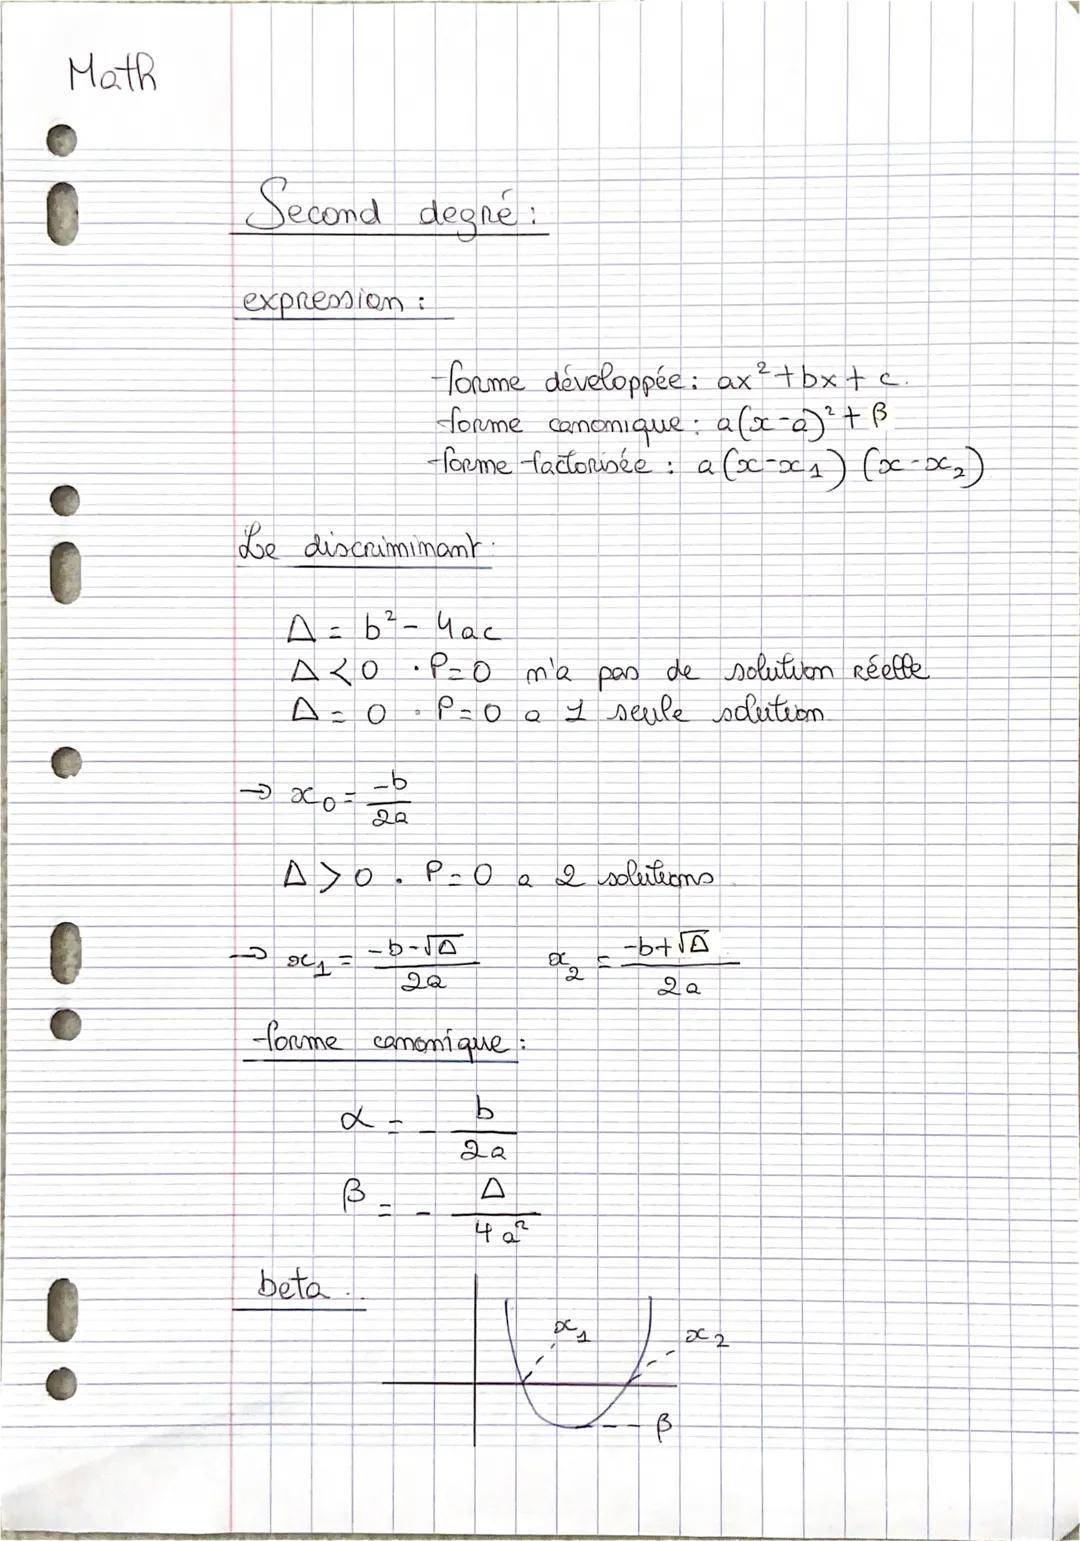 Math
Second degré :
expression :
-forme développée : ax²+bx+c.
-forme canonique : a(x-a)²+β
-forme factorisée : a(x-x₁)(x-x₂)
Le discriminant :
Δ = b² - 4ac
Δ < 0 . P=0 n'a pas de solution réelle
Δ = 0 . P=0 a 1 seule solution
→ x₀ = -b/2a
Δ > 0 . P=0 a 2 solutions
→ x₁ = -b-√Δ/2a x₂ = -b+√Δ/2a
-forme canonique :
α = - b/2a
β = - Δ/4a²
beta :
x₁ x₂
β